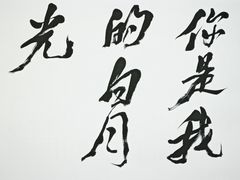 你是我
的白月
光